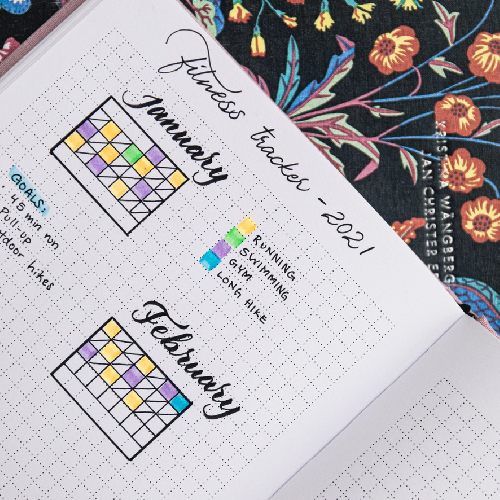 Fitness tracker - 2021
January
GOALS:
45 min run
Pull-up
hikes
RUNNING
SWIMMING
GYM
LONG HIKE
February
WÅNGBERG
JAN CHRISTER